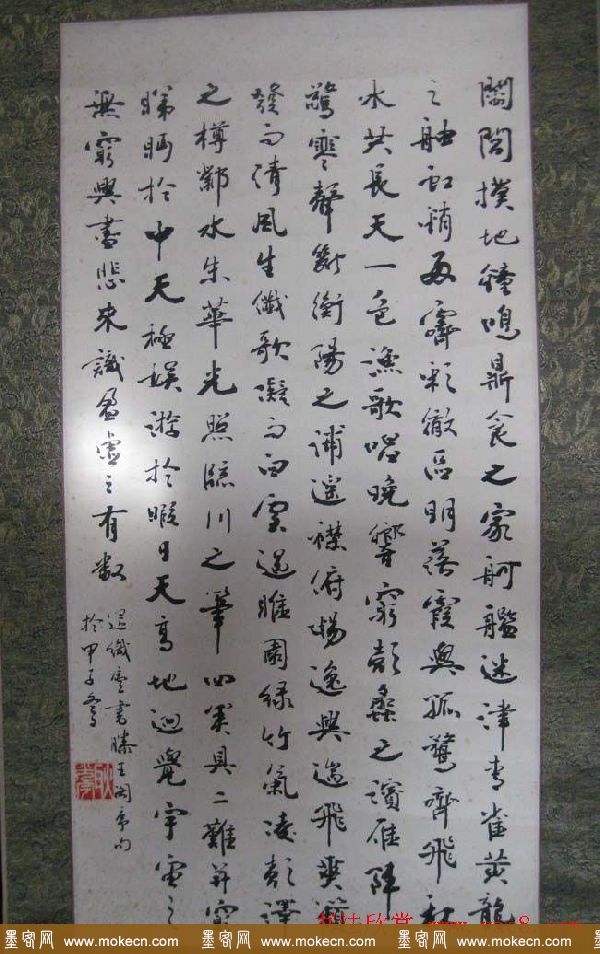 閭閻撲地鐘鳴鼎食之家舸艦迷津青雀黃龍
之舳虹銷雨霽彩徹區明落霞與孤鶩齊飛秋
水共長天一色漁歌唱晚響窮彭蠡之濱雁陣
驚寒聲斷衡陽之浦遙襟俯暢逸興遄飛爽籟
發而清風生纖歌凝而白雲遏睢園綠竹氣凌彭澤
之樽鄴水朱華光照臨川之筆四美具二難并窮
睇眄於中天極娛遊於暇日天高地迥覺宇宙之
無窮興盡悲來識盈虛之有數
書滕王閣序句
於甲子
书法欣赏
墨客网 www.mokecn.com 墨客网 www.mokecn.com 墨客网 www.mokecn.com